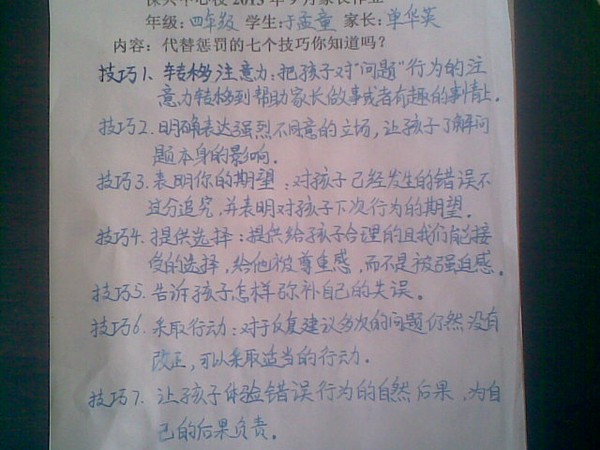 中心校2013年9月家长作业
年级：四年级 学生：于孟童 家长：单华英
内容：代替惩罚的七个技巧你知道吗？
技巧1、转移注意力：把孩子对“问题”行为的注
意力转移到帮助家长做事或者有趣的事情上。
技巧2.明确表达强烈不同意的立场，让孩子了解问
题本身的影响.
技巧3.表明你的期望：对孩子已经发生的错误不
过分追究，并表明对孩子下次行为的期望。
技巧4.提供选择：提供给孩子合理的且我们能接
受的选择，给他被尊重感，而不是被强迫感.
技巧5.告诉孩子怎样弥补自己的失误。
技巧6.采取行动：对于反复建议多次的问题仍然没有
改正，可以采取适当的行动.
技巧7.让孩子体验错误行为的自然后果，为自
己的后果负责。